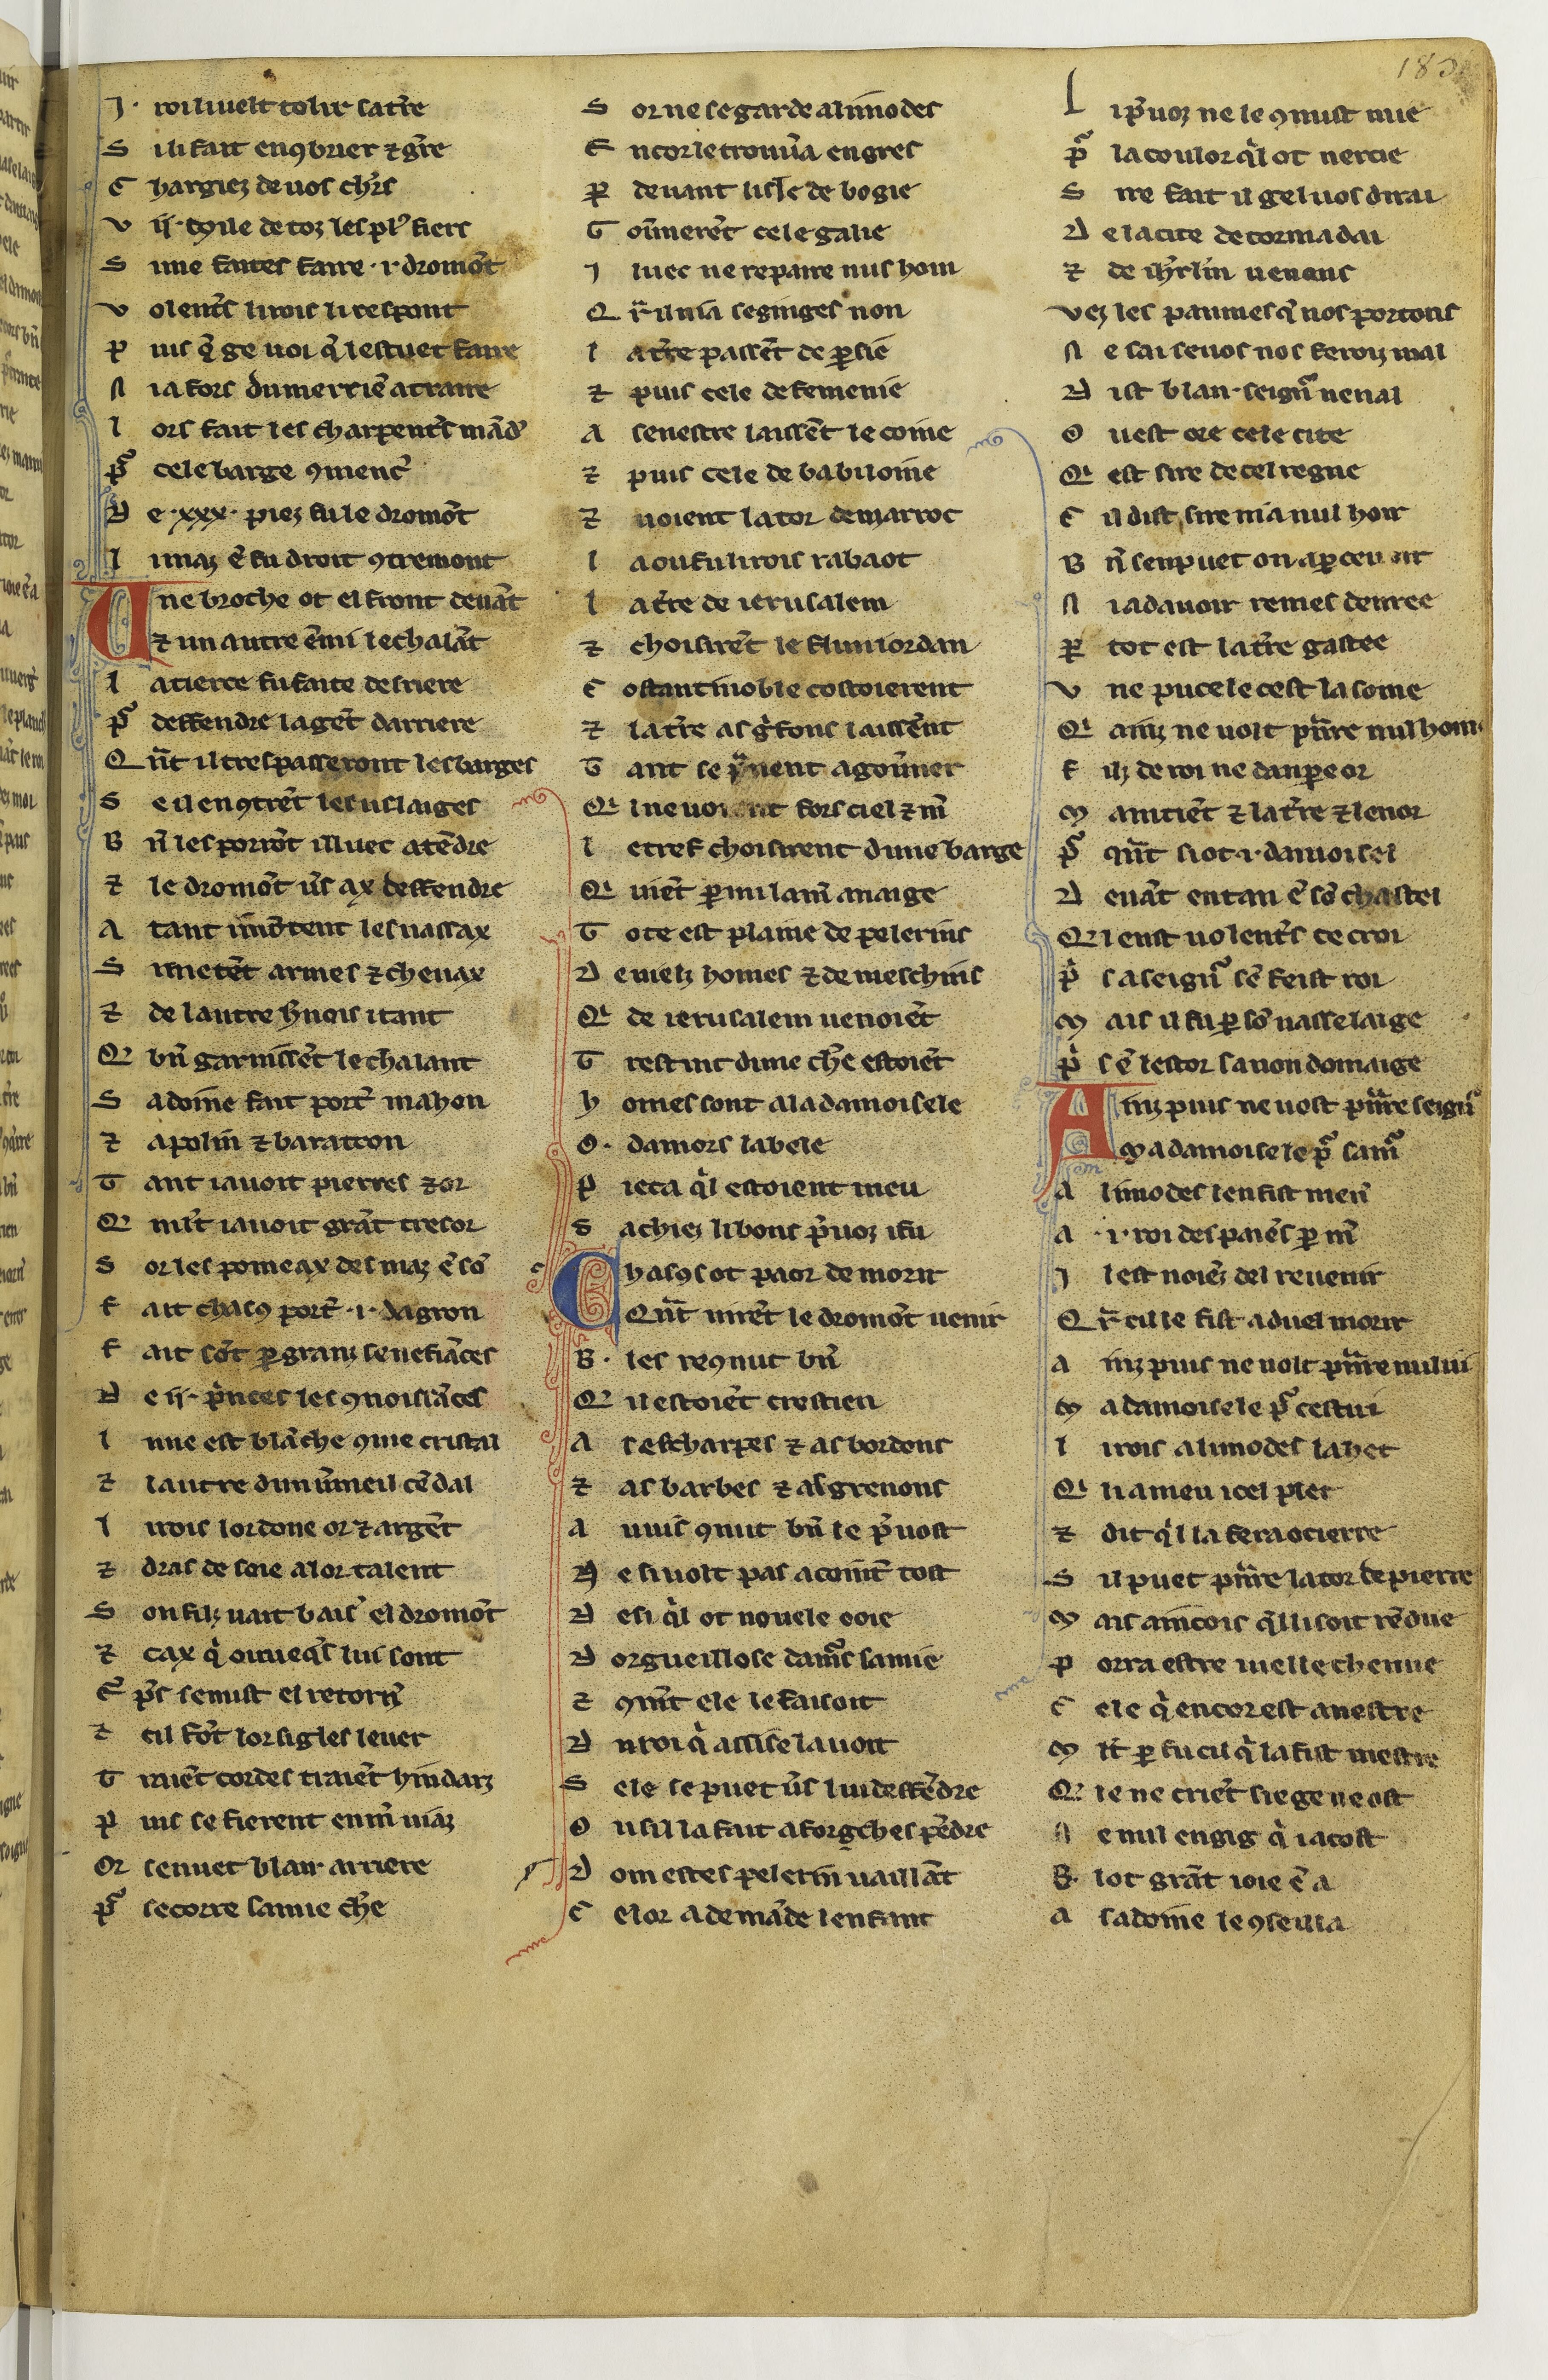 183
J· roi li uelt tolir sa tr̃e
S i li fait enꝯbrier ⁊ gr̃re
C hargiez de uos ch'rs
V ij· mile de toz les pl' fiers
S i me faites faire ·i· dromõt
V olent's li rois li respont
P uis q̃ ge uoi q̃ lestuet faire
N ia fors du merriẽ atraire
L ors fait les charpent's mãd'
P̃ cele barge ꝯmenc'
D e ·xxx· piez fu le dromõt
L i maz ẽ fu droit ꝯtremont
V ne broche ot el front deuãt
⁊ un autre ẽmi le chalãt
L a tierce fu faite derriere
P̃ deffendre la gẽt darriere
Q ñt il trespasseront les barges
S e il enꝯtrẽt les uslaiges
B ñ les porrõt illuec atẽdre
⁊ le dromõt u's ax deffendre
A tant i mõtent les uassax
S i metẽt armes ⁊ cheuax
⁊ de lautre h'nois itant
Q' bñ garnissẽt le chalant
S adoine fait port' mahon
⁊ apolin ⁊ baratton
T ant i auoit pierres ⁊ or
Q' mlt i auoit grãt tresor
S or les pomeax des maz ẽ sõ
F ait chascꝯ port' ·i· dagron
F ait sõt ꝑ granz senefiãces
D e ij· p'nces les ꝯnoissãces
L une est blãche ꝯme cristal
⁊ lautre dun u'meil cẽdal
L i rois lor done or ⁊ argẽt
⁊ dras de soie a lor talent
S on filz uait bais' el dromõt
⁊ cax q̃ o iueqs lui sont
E ñp's se mist el retorn'
⁊ cil fõt lor sigles leuer
T raiẽt cordes traiẽt hindarz
P uis se fierent en m' uiaz
Or senuet blan· arriere
P̃ secorre samie ch'e
S or ne se garde alimodes
E ncor le trouu'a en gres
P̱ deuant lisle de bogie
G ou'nerẽt cele galie
J luec ne repaire nus hom
Q r̃ il nia se singes non
L a tr̃e passẽt de ꝑsie
⁊ puis cele de femenie
A senestre laissẽt le coine
⁊ puis cele de babiloine
⁊ uoient la tor de marroc
L a ou fu li rois rabaot
L a tr̃e de ierusalem
⁊ choisirẽt le flun iordan
C ostantinoble costoierent
⁊ la tr̃e as g'fons laissẽt
T ant se p̃nent a gou'ner
Q' l ne uoient fors ciel ⁊ m'
L etref choisirent dune barge
Q' uiẽt ꝑmi la m' a naige
T ote est plaine de pelerins
D e uielz homes ⁊ de meschins
Q' de ierusalem uenoiẽt
T restuit dune ch'e estoiẽt
H omes sont a la damoisele
O· damors la bele
P ieca q̃l estoient meu
S achiez li bons p'uoz i fu
C hascꝯ ot paor de morir
Qñt uirẽt le dromõt uenir
B· les reꝯnut bñ
Q' il estoiẽt crestien
A s escharpes ⁊ as bordons
⁊ as barbes ⁊ as grenons
A uuis ꝯnut bñ le p'uost
N e si uolt pas acoint' tost
D esi q̃l ot nouele ooie
D orgueillose damors samie
⁊ ꝯmẽt ele le faisoit
D u roi q̃ assise lauoit
S ele se puet u's lui deffẽdre
O u sil la fait a forgches pẽdre
D om estes pelerin uaillãt
C elor a demãde lenfant
L i p'uoz ne le ꝯnust mie
P̃ la coulor q̃l ot nercie
S ire fait il gel uos dirai
D e la cite de cormadai
⁊ de ih'rl'm uenons
Vez les paumes q̃ nos portons
N e sai se uos nos feroiz mal
D ist blan· seign' nenal
O u est ore cele cite
Q' est sire de cel regne
C il dist sire nia nul hoir
B ñ sen puet on aꝑceuoir
N ia dauoir remes denree
P̱ tot est la tr̃e gastee
V ne pucele cest la some
Q' ainz ne uolt p'nre nul home
F ilz de roi ne danpeor
M aintiẽt ⁊ la tr̃e ⁊ lenor
P̃ qñt si ot ·i· damoisel
D euãt entau ẽ sõ chastel
Q' l eust uolent's ce croi
P̃ sa seign' sẽ feist roi
M ais il fu ꝑ sõ uasselaige
P̃ sẽ lestor sauon domaige
A inz puis ne uost p'nre seign'
Ma damoisele p̃ sam'
A limodes len fist men'
A ·i· roi des paiẽs ꝑ m'
J l est noiẽz del reuenir
Q r̃ cil le fist a duel morir
A inz puis ne uolt p'nre nului
M a damoisele p̃ cestui
L i rois alimodes la het
Q' li a meu icel plet
⁊ dit q̃l la fera ocierre
S il puet p'nre la tor de pierre
M ais aincois q̃l li soit rẽdue
P orra estre uielle chenue
C ele q̃ encor est a nestre
M lt ꝑ fu cil q̃ la fist mestre
Q' le ne criẽt siege ne ost
N e nul engig q̃ i acost
B· lot grãt ioie ẽ a
A sadoine le ꝯseilla